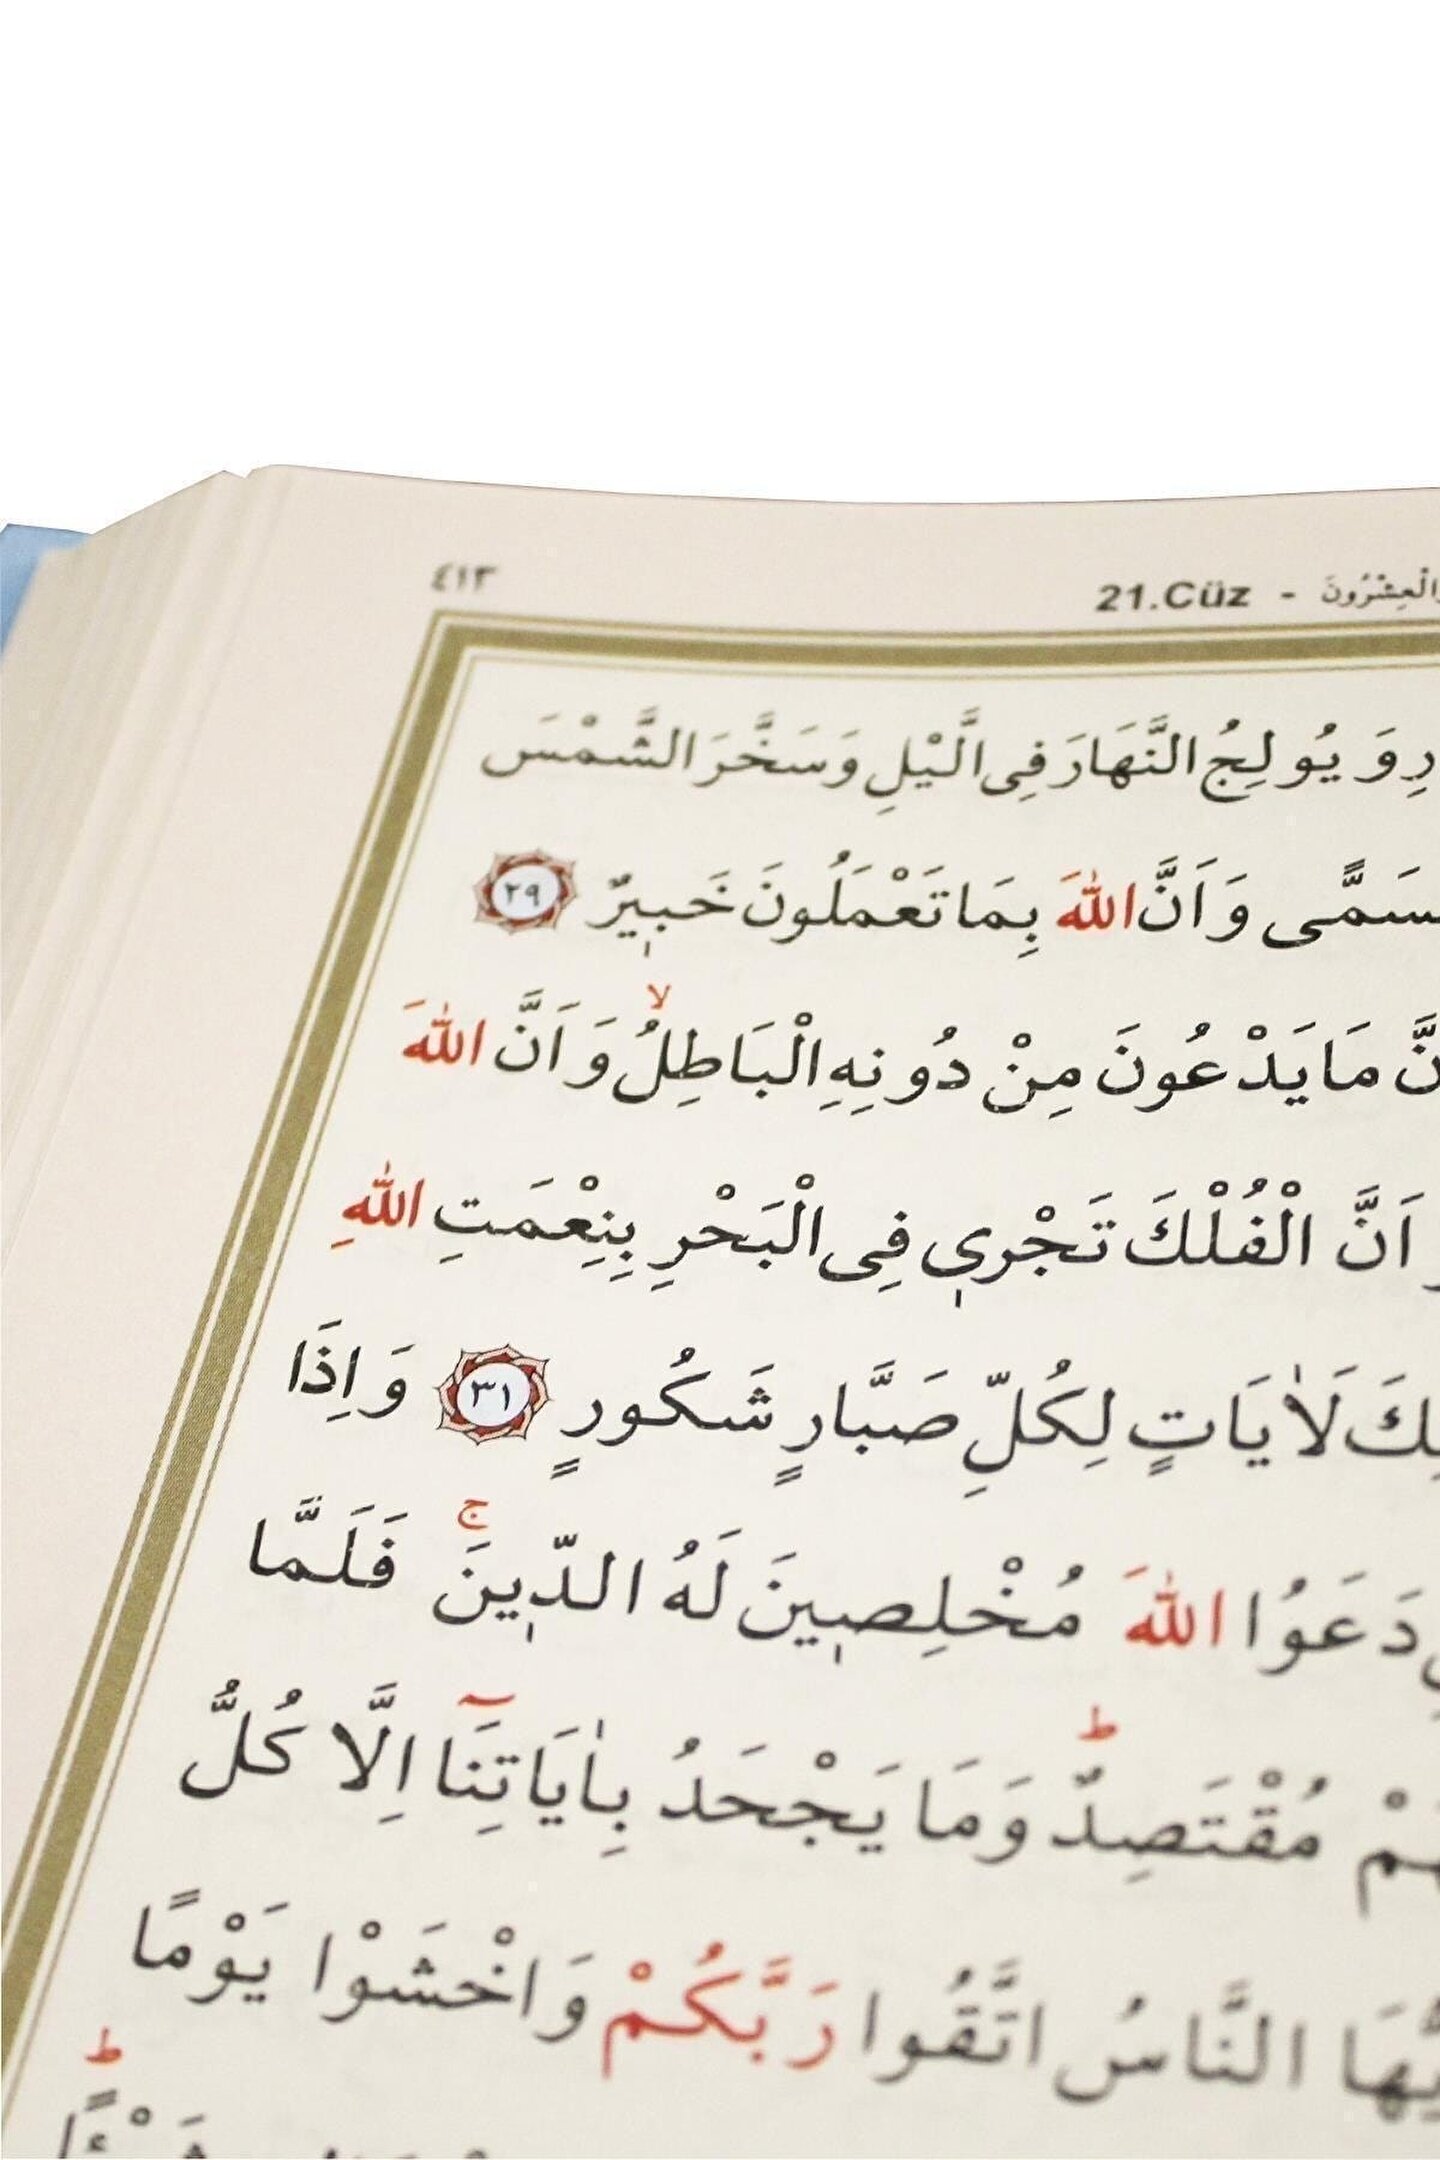 ٤١٣
21.Cüz - وَالْعِشْرُونَ
رِ وَيُولِجُ النَّهَارَ فِى الَّيْلِ وَسَخَّرَ الشَّمْسَ
سَمًّى وَاَنَّ اللّٰهَ بِمَا تَعْمَلُونَ خَبٖيرٌ ٢٩
نَّ مَا يَدْعُونَ مِنْ دُونِهِ الْبَاطِلُۙ وَاَنَّ اللّٰهَ
اَنَّ الْفُلْكَ تَجْرٖى فِى الْبَحْرِ بِنِعْمَتِ اللّٰهِ
لِكَ لَاٰيَاتٍ لِكُلِّ صَبَّارٍ شَكُورٍ ٣١ وَاِذَا
دَعَوُا اللّٰهَ مُخْلِصٖينَ لَهُ الدّٖينَۚ فَلَمَّا
هُمْ مُقْتَصِدٌؕ وَمَا يَجْحَدُ بِاٰيَاتِنَٓا اِلَّا كُلُّ
يُّهَا النَّاسُ اتَّقُوا رَبَّكُمْ وَاخْشَوْا يَوْمًا